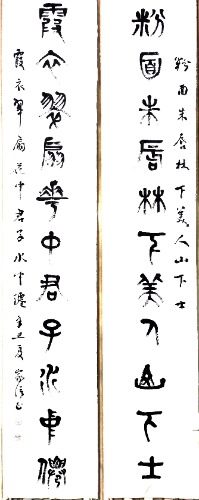 粉面朱唇林下美人山下士
粉面朱唇林下美人山下士
霞衣翠扇華中君子水中僊
霞衣翠扇花中君子水中僊辛丑夏